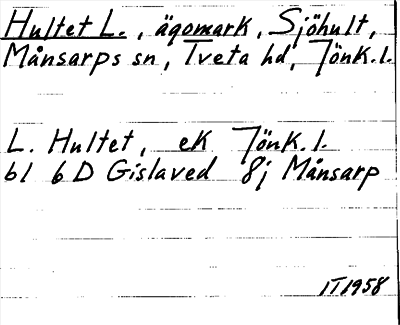 Hultet L., ägomark, Sjöhult,
Månsarps sn, Tveta hd, Jönk.l.
L. Hultet, ek Jönk.l.
bl 6 D Gislaved 8j Månsarp
IT1958